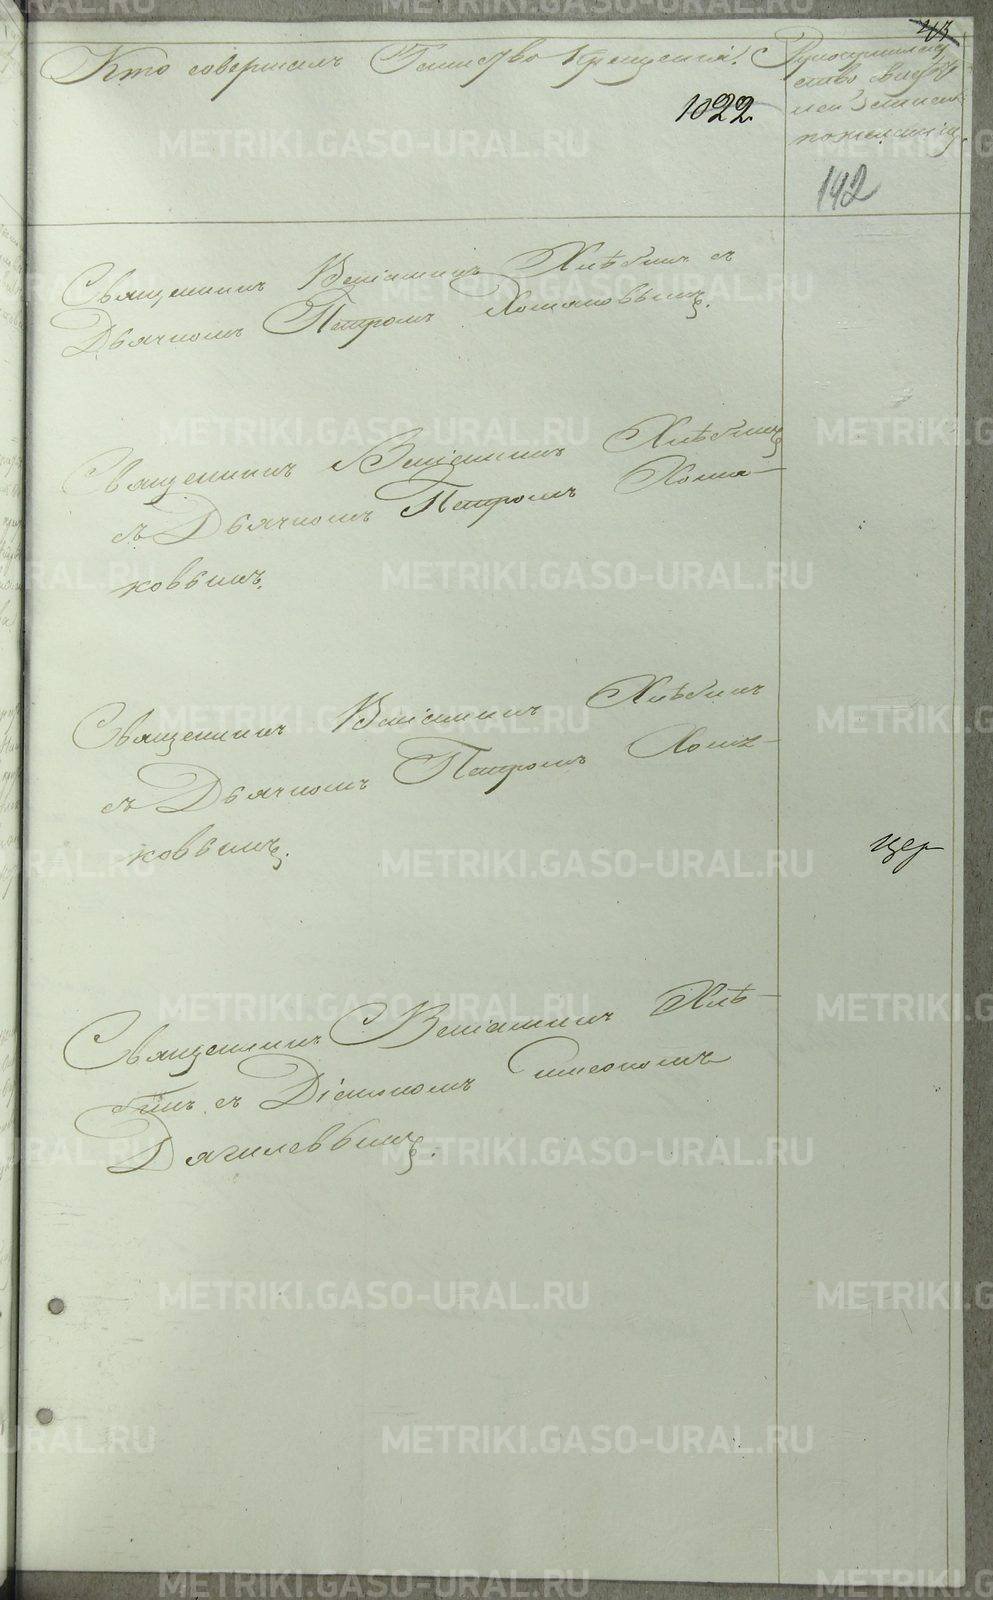 Кто совершалъ Таинство Крещенія.
Рукоприклад
ство свидѣте
лей записи
по желанію.
1022
142
Священникъ Веніаминъ Хлѣбинъ съ
Дьячкомъ Петромъ Хомяковымъ.
Священникъ Веніаминъ Хлѣбинъ
съ Дьячкомъ Петромъ Хомя-
ковымъ.
Священникъ Веніаминъ Хлѣбинъ
съ Дьячкомъ Петромъ Хомя-
ковымъ.
цер
Священникъ Веніаминъ Хлѣ-
бинъ съ Діакономъ Симеономъ
Дягилевымъ.
METRIKI.GASO-URAL.RU